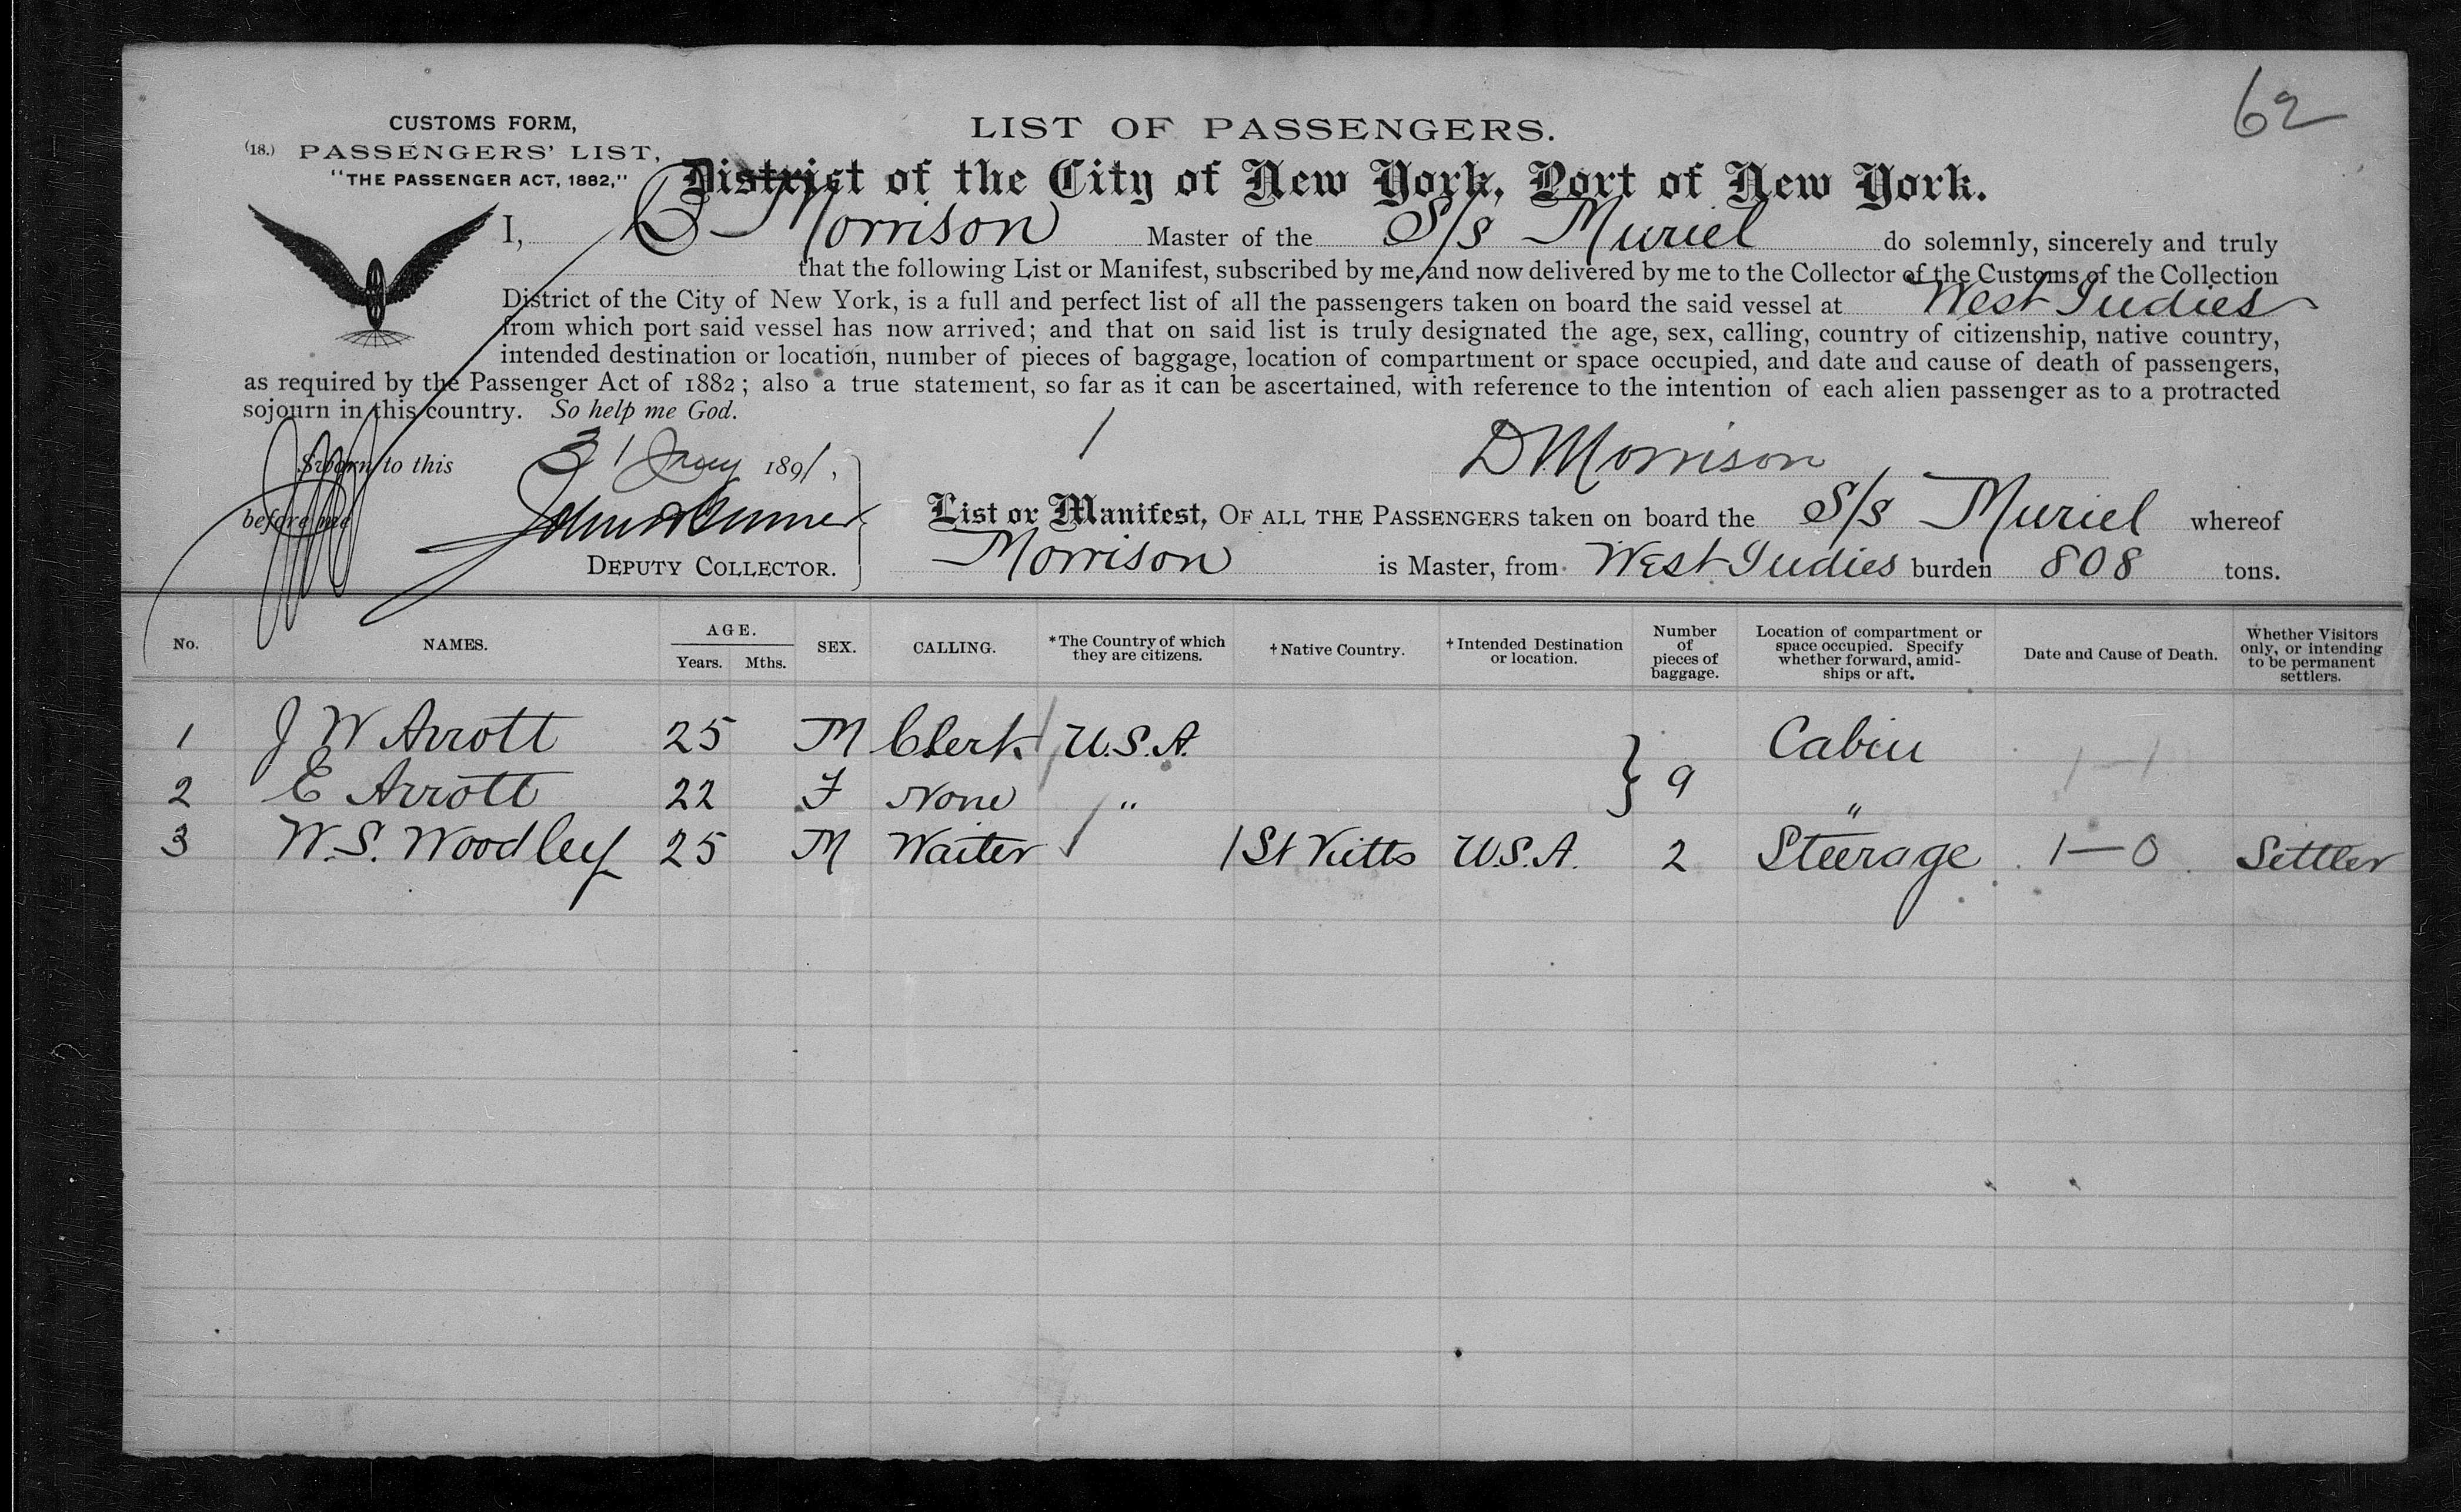 62
CUSTOMS FORM,
(18.) PASSENGERS' LIST,
"THE PASSENGER ACT, 1882,"
LIST OF PASSENGERS.
District of the City of New York, Port of New York.
I, D Morrison Master of the S/s Muriel do solemnly, sincerely and truly
that the following List or Manifest, subscribed by me, and now delivered by me to the Collector of the Customs of the Collection
District of the City of New York, is a full and perfect list of all the passengers taken on board the said vessel at West Indies
from which port said vessel has now arrived; and that on said list is truly designated the age, sex, calling, country of citizenship, native country,
intended destination or location, number of pieces of baggage, location of compartment or space occupied, and date and cause of death of passengers,
as required by the Passenger Act of 1882; also a true statement, so far as it can be ascertained, with reference to the intention of each alien passenger as to a protracted
sojourn in this country. So help me God.
Sworn to this 31 Jany 1891,
D Morrison
before me John
DEPUTY COLLECTOR.
List or Manifest, OF ALL THE PASSENGERS taken on board the S/s Muriel whereof
Morrison is Master, from West Indies burden 808 tons.
No. NAMES. AGE. Years. Mths. SEX. CALLING. *The Country of which they are citizens. †Native Country. †Intended Destination or location. Number of pieces of baggage. Location of compartment or space occupied. Specify whether forward, amidships or aft. Date and Cause of Death. Whether Visitors only, or intending to be permanent settlers.
1 J W Arrott 25 M Clerk U.S.A. Cabin
2 E Arrott 22 F None " } 9 " 1—1
3 W.S. Woodley 25 M Waiter / 1 St Kitts U.S.A. 2 Steerage 1—0 Settler